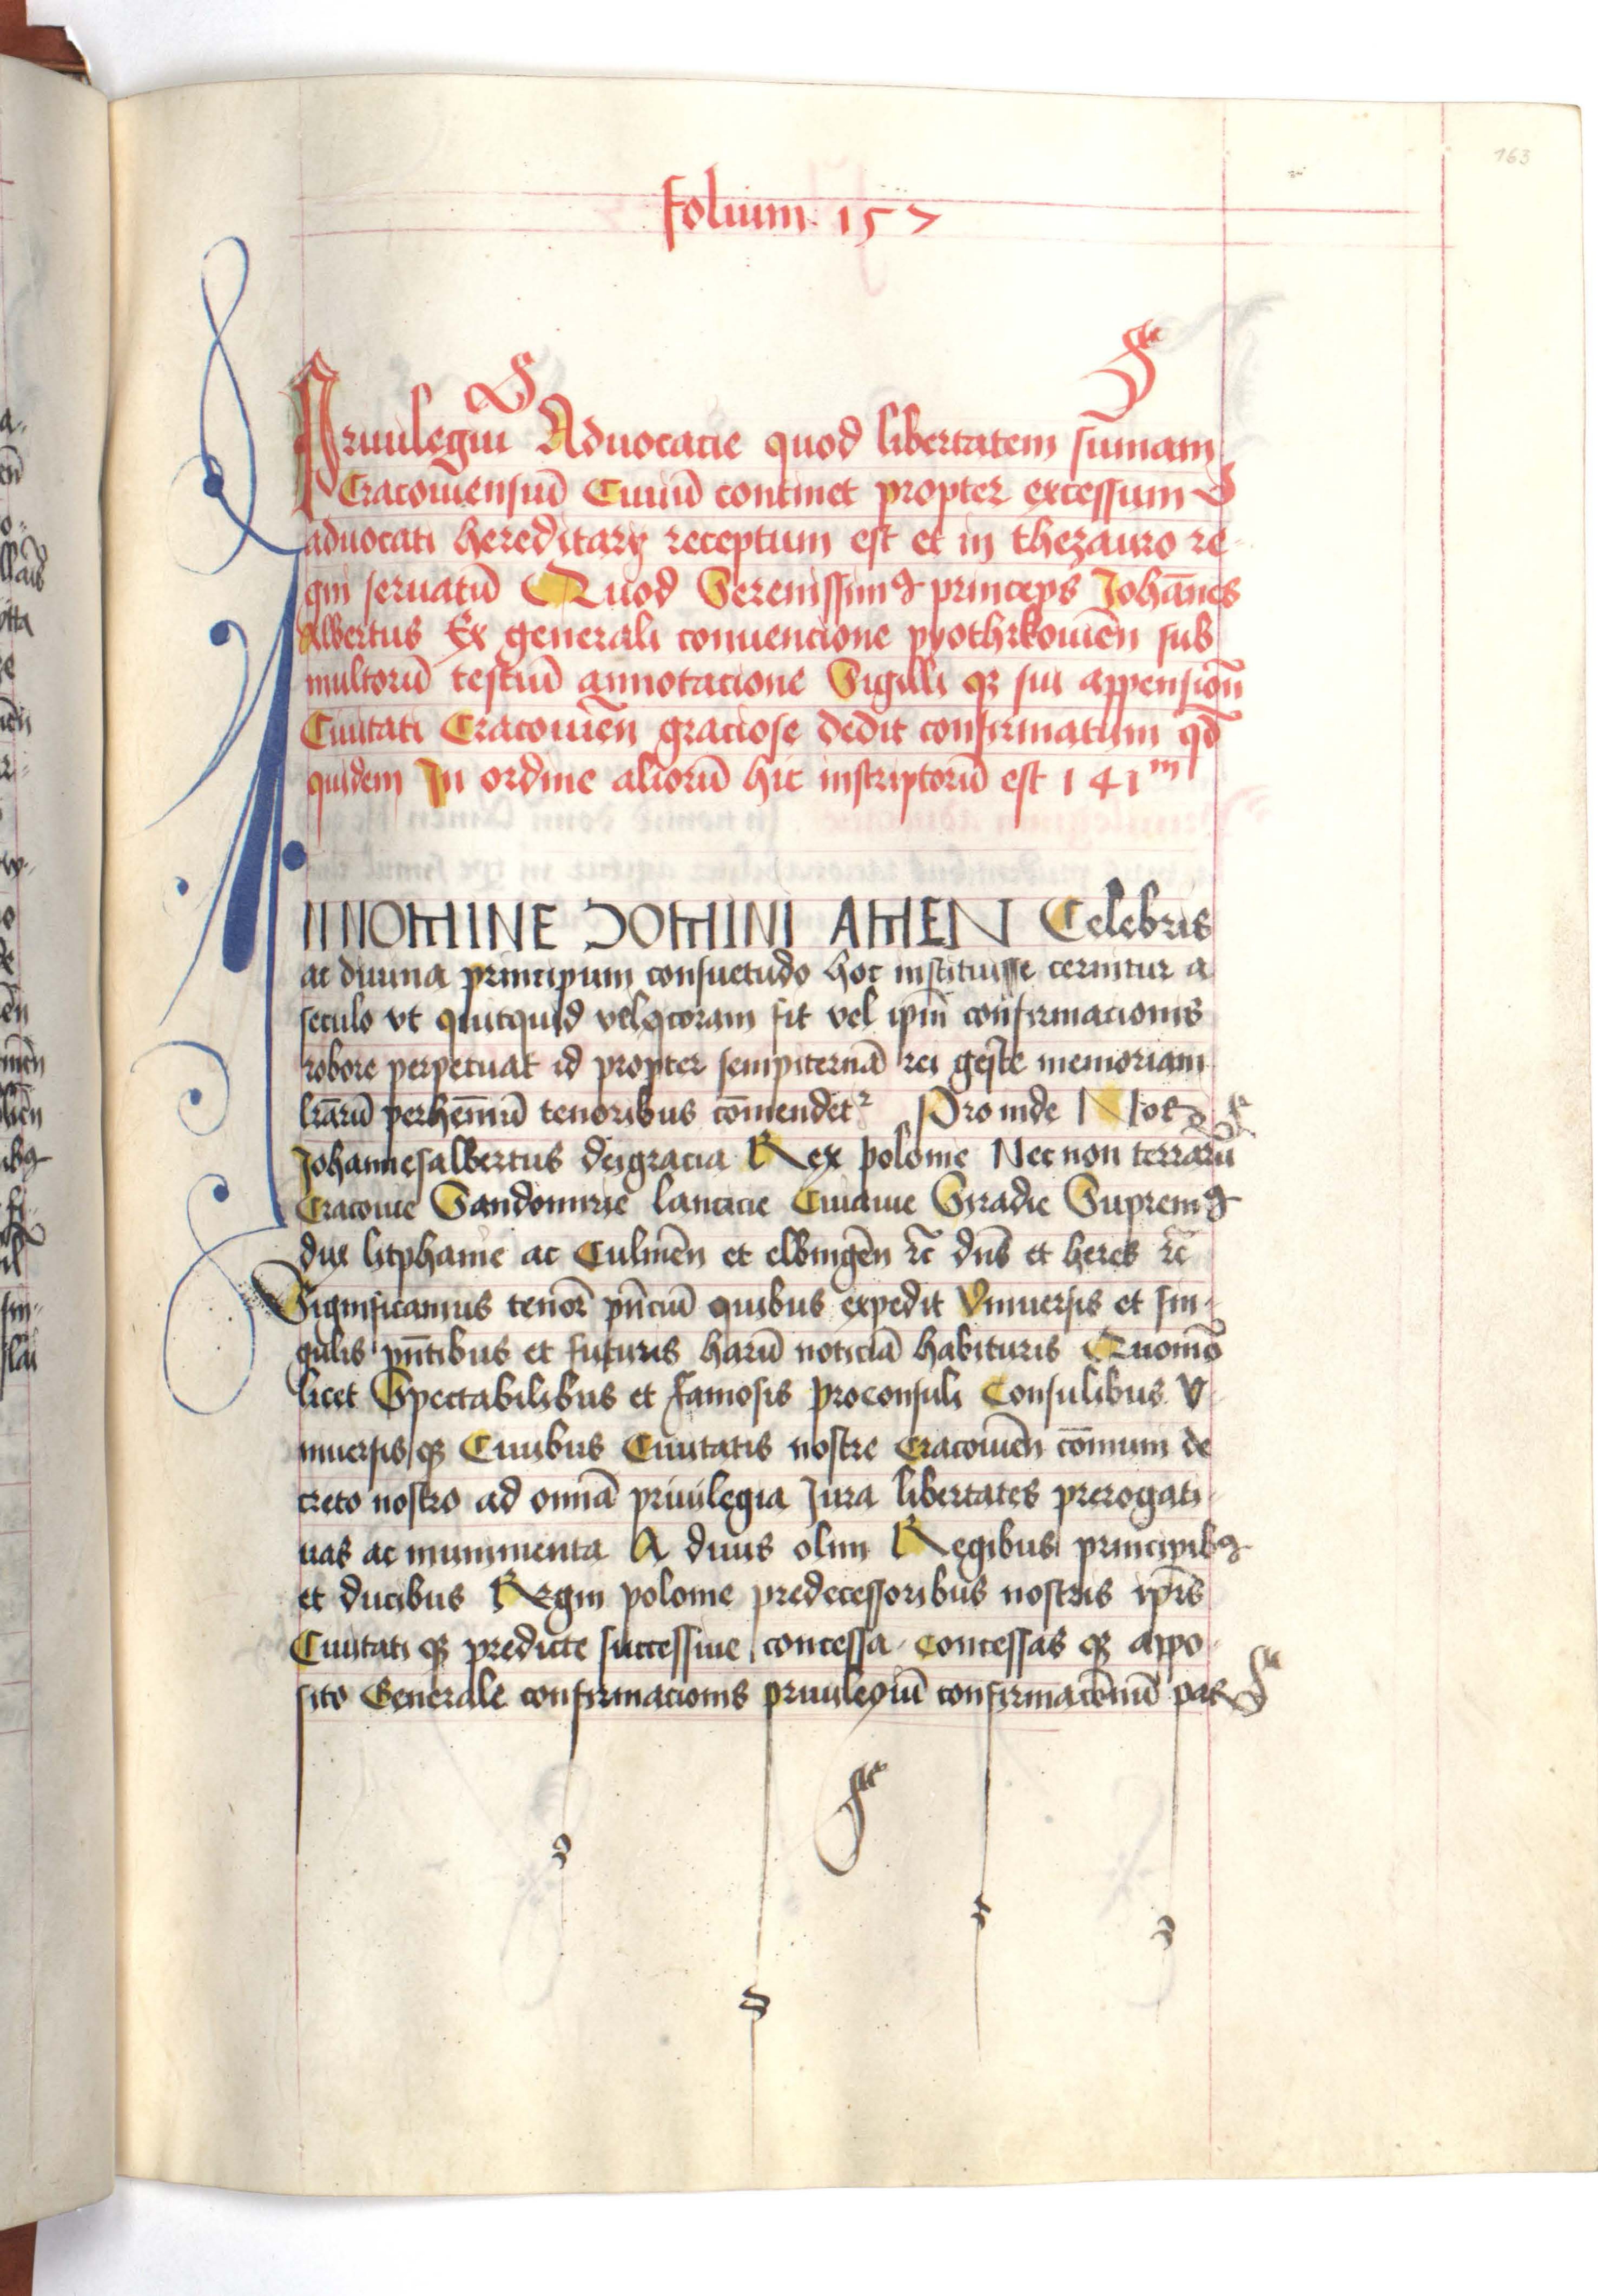 163
folium 157
Priuilegiū Aduocacie quod libertatem sūmam
Cracouiensiū Ciuiū continet propter excessum
aduocati hereditarij receptum est et in thezauro re-
gni seruatū Quod Serenissimꝰ princeps Johān̄es
Albertus Ex generali conuencione pyothrkouiēn sub
multorū testiū annotacione Sigilli qꝫ sui appensiōn
Ciuitati Cracouiēn graciose dedit confirmatum qd̄
quidem In ordine aliorū hic inscriptorū est 141m
IN NOMINE DOMINI AMEN Celebris
ac diuina principum consuetudo hoc instituisse cernitur a
seculo vt quitquid coram fit vel ipm̄ confirmacionis
robore perpetuat id propter sempiternā rei geste memoriam
lr̄arū perhēnniū tenoribus cōmendet᷑ Proinde Nos
Johannesalbertus deigracia Rex polonie Necnon terrarū
Cracouie Sandomirie lancicie Cuiauie Siradie Supremꝰ
dux litphanie ac Culmēn et elbingēn rc̄ dn̄s et heres rc̄
Significamus tenor̄ pn̄ciū quibus expedit Vniuersis et sin-
gulis pn̄tibus et futuris harū noticiā habituris Quomō
licet Spectabilibus et famosis proconsuli Consulibus V-
niuersis qꝫ Ciuibus Ciuitatis nostre Cracouiēn cōmuni de
creto nostro ad omīa priuilegia Jura libertates prerogati-
uas ac munimenta A diuis olim Regibus principibꝰ
et ducibus Regni polonie predecessoribus nostris ip̄is
Ciuitati qꝫ predicte successiue concessa concessas qꝫ appo-
sito Generale confirmacionis priuilegiū confirmacōniū par